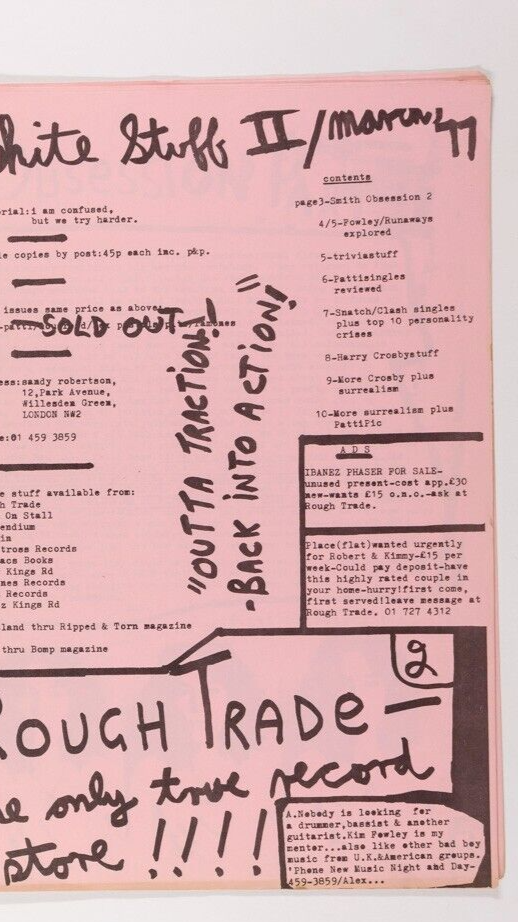 hite Stuff II/March 77
contents
page3-Smith Obsession 2
4/5-Fowley/Runaways
explored
5-triviastuff
6-Pattisingles
reviewed
7-Snatch/Clash singles
plus top 10 personality
crises
8-Harry Crosbystuff
9-More Crosby plus
surrealism
10-More surrealism plus
PattiPic
rial:i am confused,
but we try harder.
le copies by post:45p each inc. p&p.
issues same price as above:
SOLD OUT!
ess:sandy robertson,
12,Park Avenue,
Willesden Green,
LONDON NW2
e:01 459 3859
"OUTTA TRACTION!-
-BACK INTO ACTION!"
e stuff available from:
h Trade
On Stall
endium
in
tross Records
acs Books
Kings Rd
mes Records
Records
z Kings Rd
land thru Ripped & Torn magazine
thru Bomp magazine
ADS
IBANEZ PHASER FOR SALE-
unused present-cost app.£30
new-wants £15 o.n.o.-ask at
Rough Trade.
Place(flat)wanted urgently
for Robert & Kimmy-£15 per
week-Could pay deposit-have
this highly rated couple in
your home-hurry!first come,
first served!leave message at
Rough Trade. 01 727 4312
2
ROUGH TRADE-
he only true record
store !!!!
A.Nobody is looking for
a drummer,bassist & another
guitarist.Kim Fowley is my
mentor...also like other bad boy
music from U.K.&American groups.
'Phone New Music Night and Day-
459-3859/Alex...